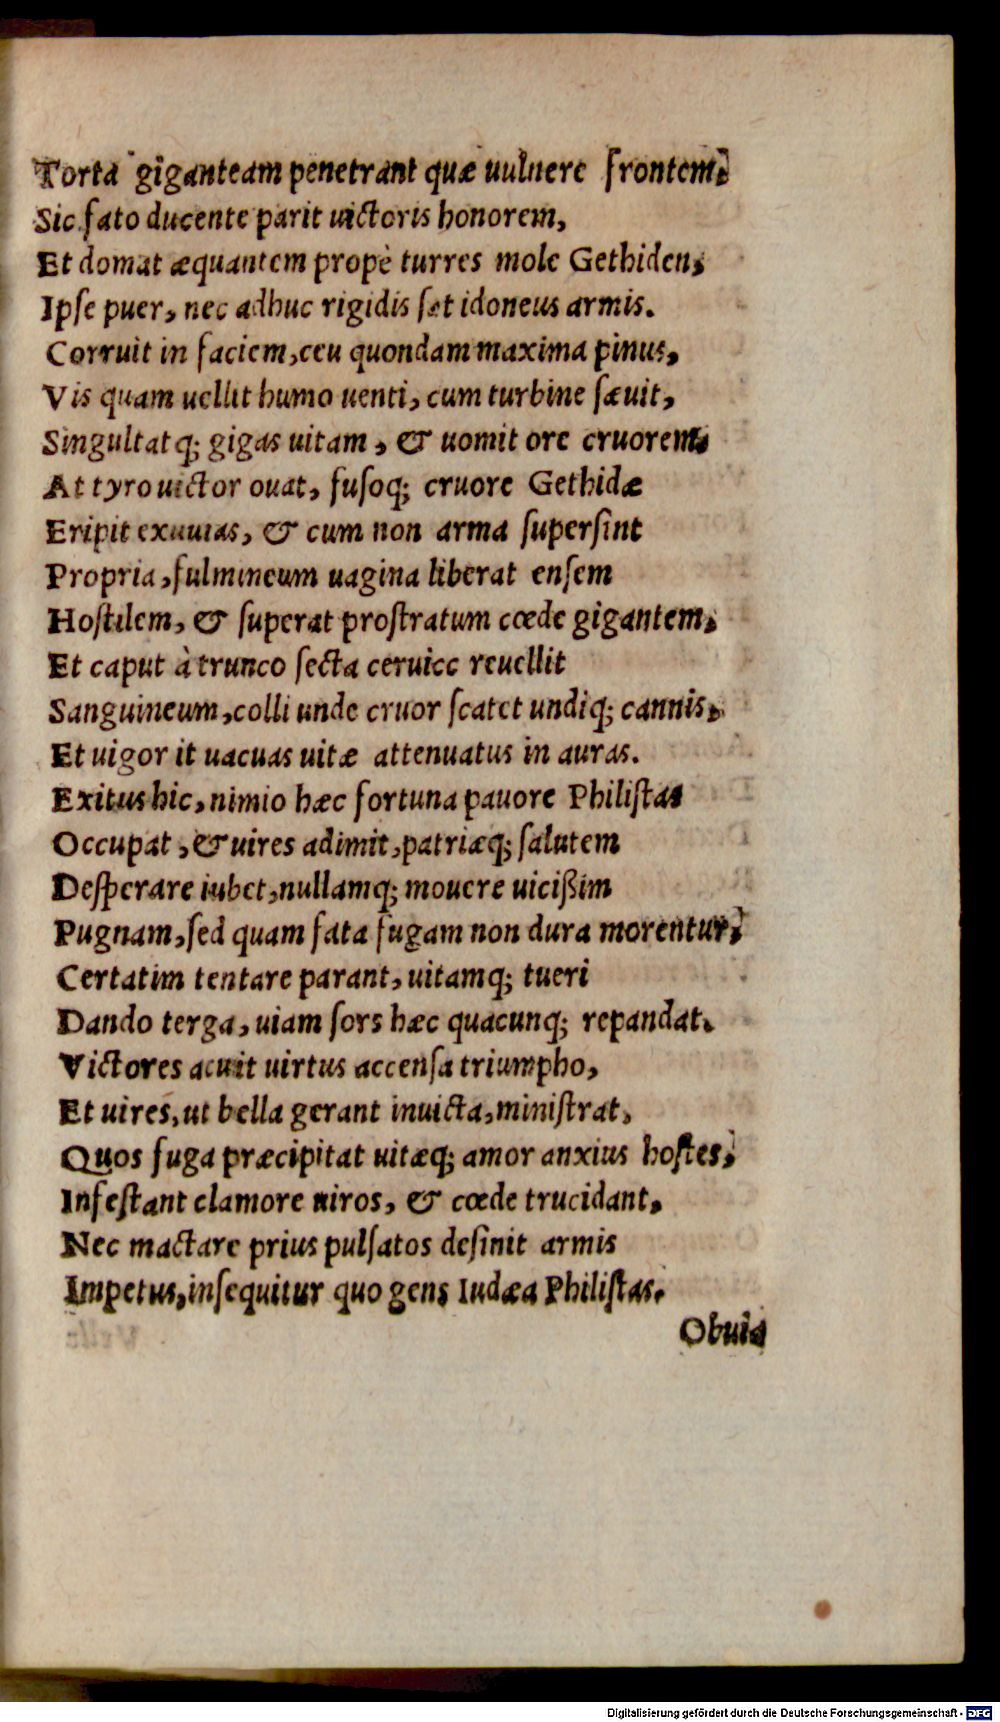 Torta giganteam penetrant quæ uulnere frontem,
Sic fato ducente parit uictoris honorem,
Et domat æquantem propè turres mole Gethiden,
Ipſe puer, nec adhuc rigidis ſet idoneus armis.
Corruit in faciem, ceu quondam maxima pinus,
Vis quam uellit humo uenti, cum turbine ſæuit,
Singultatq; gigas uitam, & uomit ore cruorem,
At tyro uictor ouat, fuſoq; cruore Gethidæ
Eripit exuuias, & cum non arma ſuperſint
Propria, fulmineum uagina liberat enſem
Hoſtilem, & ſuperat proſtratum cœde gigantem,
Et caput à trunco ſecta ceruice reuellit
Sanguineum, colli unde cruor ſcatet undiq; cannis,
Et uigor it uacuas uitæ attenuatus in auras.
Exitus hic, nimio hæc fortuna pauore Philiſtas
Occupat, & uires adimit, patriæq; ſalutem
Deſperare iubet, nullamq; mouere uicißim
Pugnam, ſed quam fata fugam non dura morentur,
Certatim tentare parant, uitamq; tueri
Dando terga, uiam ſors hæc quacunq; repandat.
Victores acuit uirtus accenſa triumpho,
Et uires, ut bella gerant inuicta, miniſtrat,
Quos fuga præcipitat uitæq; amor anxius hoſtes,
Infeſtant clamore uiros, & cœde trucidant,
Nec mactare prius pulſatos deſinit armis
Impetus, inſequitur quo gens Iudæa Philiſtas.
Obuia
Digitalisierung gefördert durch die Deutsche Forschungsgemeinschaft - DFG